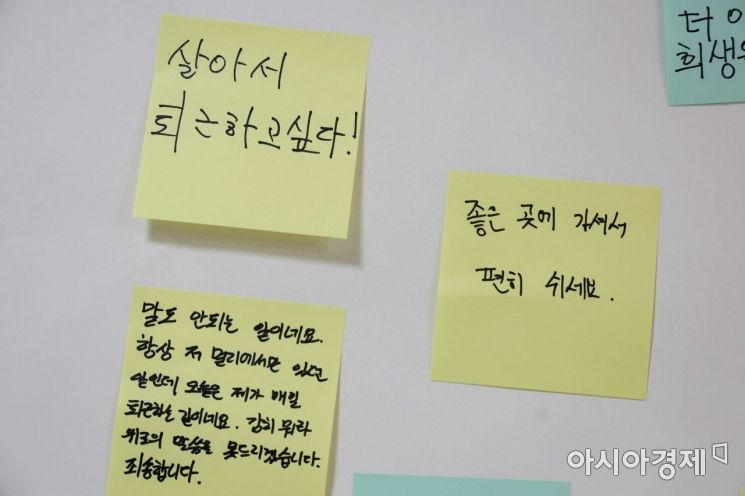 살아서
퇴근하고싶다!
더 이
희생
좋은 곳에 가셔서
편히 쉬세요.
말도 안되는 일이네요.
항상 저 멀리에서만 있던
일인데 오늘은 제가 매일
퇴근하는 길이네요. 감히 뭐라
위로의 말씀을 못드리겠습니다.
죄송합니다.
아시아경제